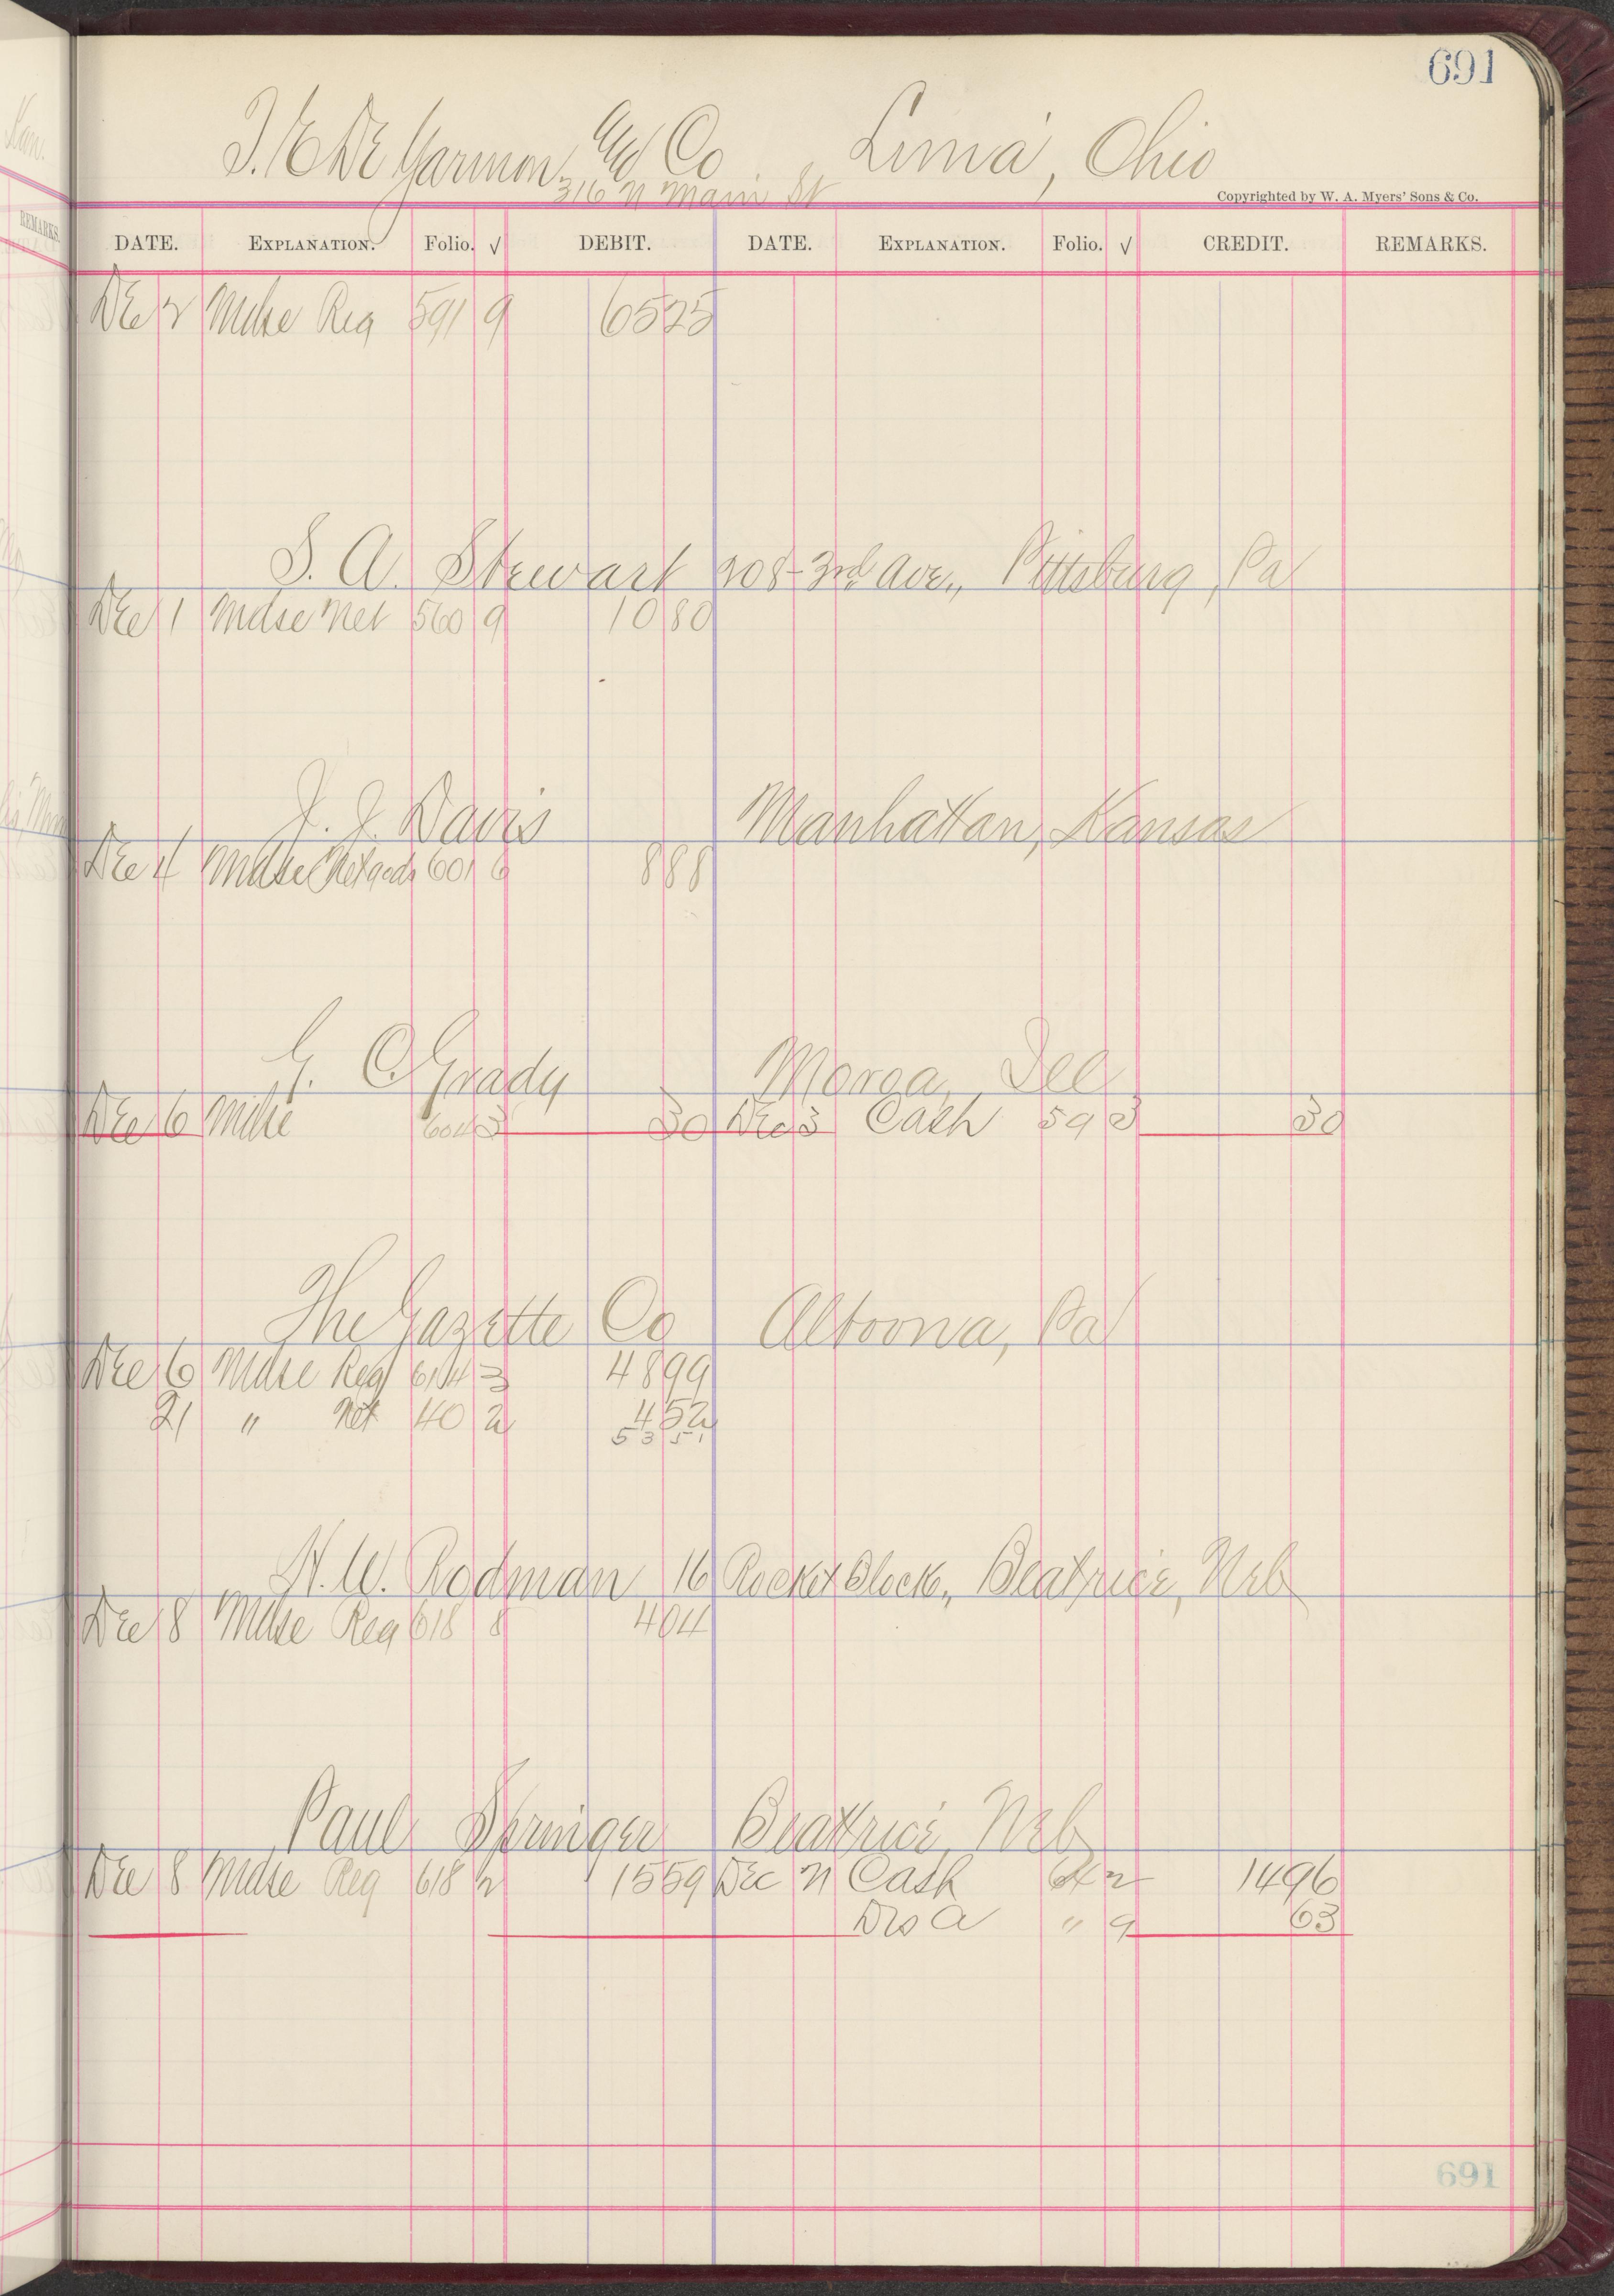 691
T. E. DeYarmon and Co , Lima, Ohio
316 N Main St
Copyrighted by W. A. Myers' Sons & Co.
DATE. EXPLANATION. Folio. √ DEBIT. DATE. EXPLANATION. Folio. √ CREDIT. REMARKS.
Dec 2 Mdse Reg 591 9 65 25
S. A. Stewart 208-3rd Ave., Pittsburg, Pa
Dec 1 Mdse Net 560 9 10 80
J. J. Davis Manhattan, Kansas
Dec 4 Mdse Net goods 601 6 8 88
G. C. Grady Moroa, Ill
Dec 6 Mdse 604 3 30 Dec 3 Cash 59 3 30
The Gazette Co Altoona, Pa
Dec 6 Mdse Reg 614 3 48 99
21 " Net 40 2 4 52
53 51
H. W. Rodman 16 Rocket Block, Beatrice, Neb
Dec 8 Mdse Reg 618 8 4 04
Paul Springer Beatrice, Neb
Dec 8 Mdse Reg 618 2 15 59 Dec 21 Cash 64 2 14 96
Dis a " 9 63
691